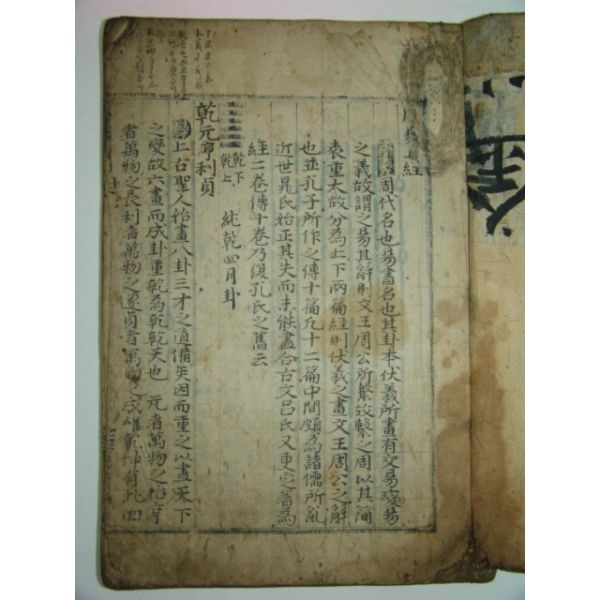 易上經
周代名也易書名也其卦本伏羲所畫有交易變易
之義故謂之易其辭則文王周公所繫故繫之周以其簡
袠重大故分為上下兩篇經則伏羲之畫文王周公之辭
也並孔子所作之傳十篇凡十二篇中間頗為諸儒所亂
近世晁氏始正其失而未能盡合古文呂氏又更定著為
經二卷傳十卷乃復孔氏之舊云
乾下
乾上
純乾四月卦
乾元亨利貞
上古聖人始畫八卦三才之道備矣因而重之以盡天下
之變故六畫而成卦重乾為乾乾天也 元者萬物之始亨
者萬物之長利者萬物之遂貞者萬物之成唯乾坤有此四